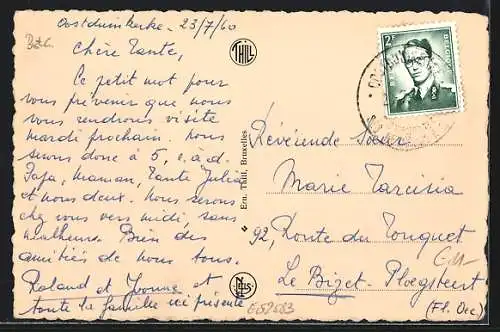 Oostduinkerke - 23/7/60
Chère Tante,
Ce petit mot pour
vous prévenir que nous
vous rendrons visite
mardi prochain. Nous
serons donc à 5, c.à.d.
Papa, Maman, Tante Julia
et nous deux. Nous serons
chez vous vers midi sans
malheur. Bien des
amitiés de nous tous.
Roland et Yvonne et
toute la famille ici présente
THILL
Ern. Thill, Bruxelles
NELS
2F
Révérende Soeur
Marie Tarcisia
92, Route du Touquet
Le Bizet - Ploegsteert
(Fl. Occ)
E52583